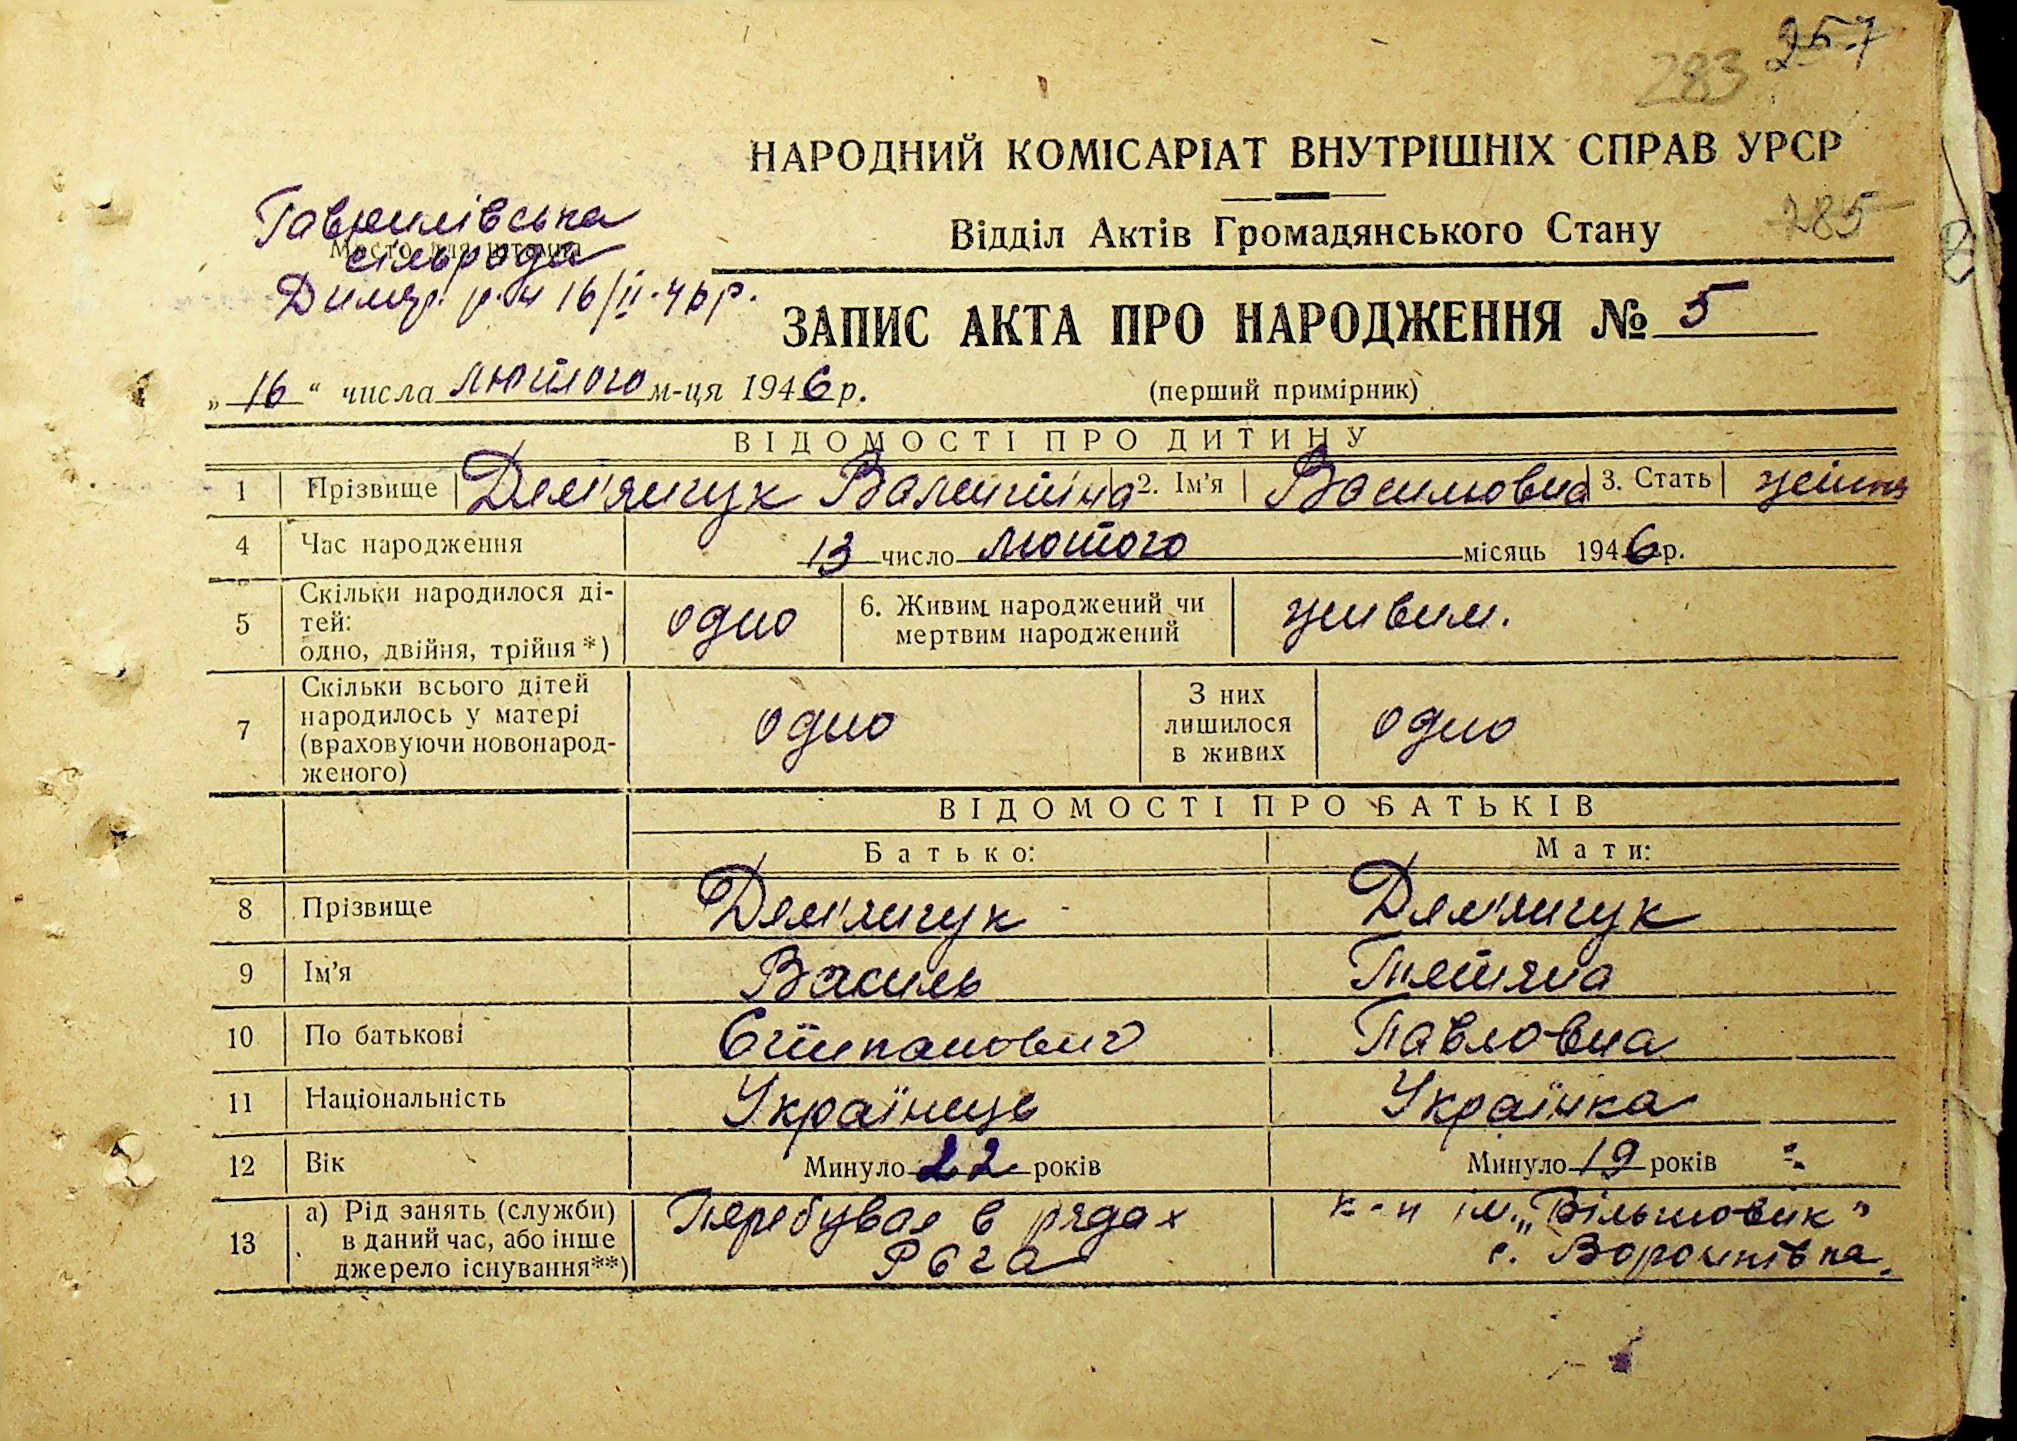 257
283
НАРОДНИЙ КОМІСАРІАТ ВНУТРІШНІХ СПРАВ УРСР
285
Відділ Актів Громадянського Стану
Гаврилівська
сільрада
Димер. р-н 16/II-46р.
ЗАПИС АКТА ПРО НАРОДЖЕННЯ № 5
„16“ числа лютого м-ця 1946 р.
(перший примірник)
ВІДОМОСТІ ПРО ДИТИНУ
1 Прізвище Дем'янчук Валентіна 2. Ім'я Василовна 3. Стать
4 Час народження 13 число лютого місяць 1946 р.
5 Скільки народилося ді-
тей:
одно, двійня, трійня *) одно 6. Живим народжений чи
мертвим народжений живим.
7 Скільки всього дітей
народилось у матері
(враховуючи новонарод-
женого) одно З них
лишилося
в живих одно
ВІДОМОСТІ ПРО БАТЬКІВ
Батько: Мати:
8 Прізвище Дем'янчук Дем'янчук
9 Ім'я Василь Тетяна
10 По батькові Степанович Павловна
11 Національність Українець Українка
12 Вік Минуло 22 років Минуло 19 років
13 а) Рід занять (служби)
в даний час, або інше
джерело існування**) Перебуває в рядах
к-п ім. „Більшовик"
с. Воронківка